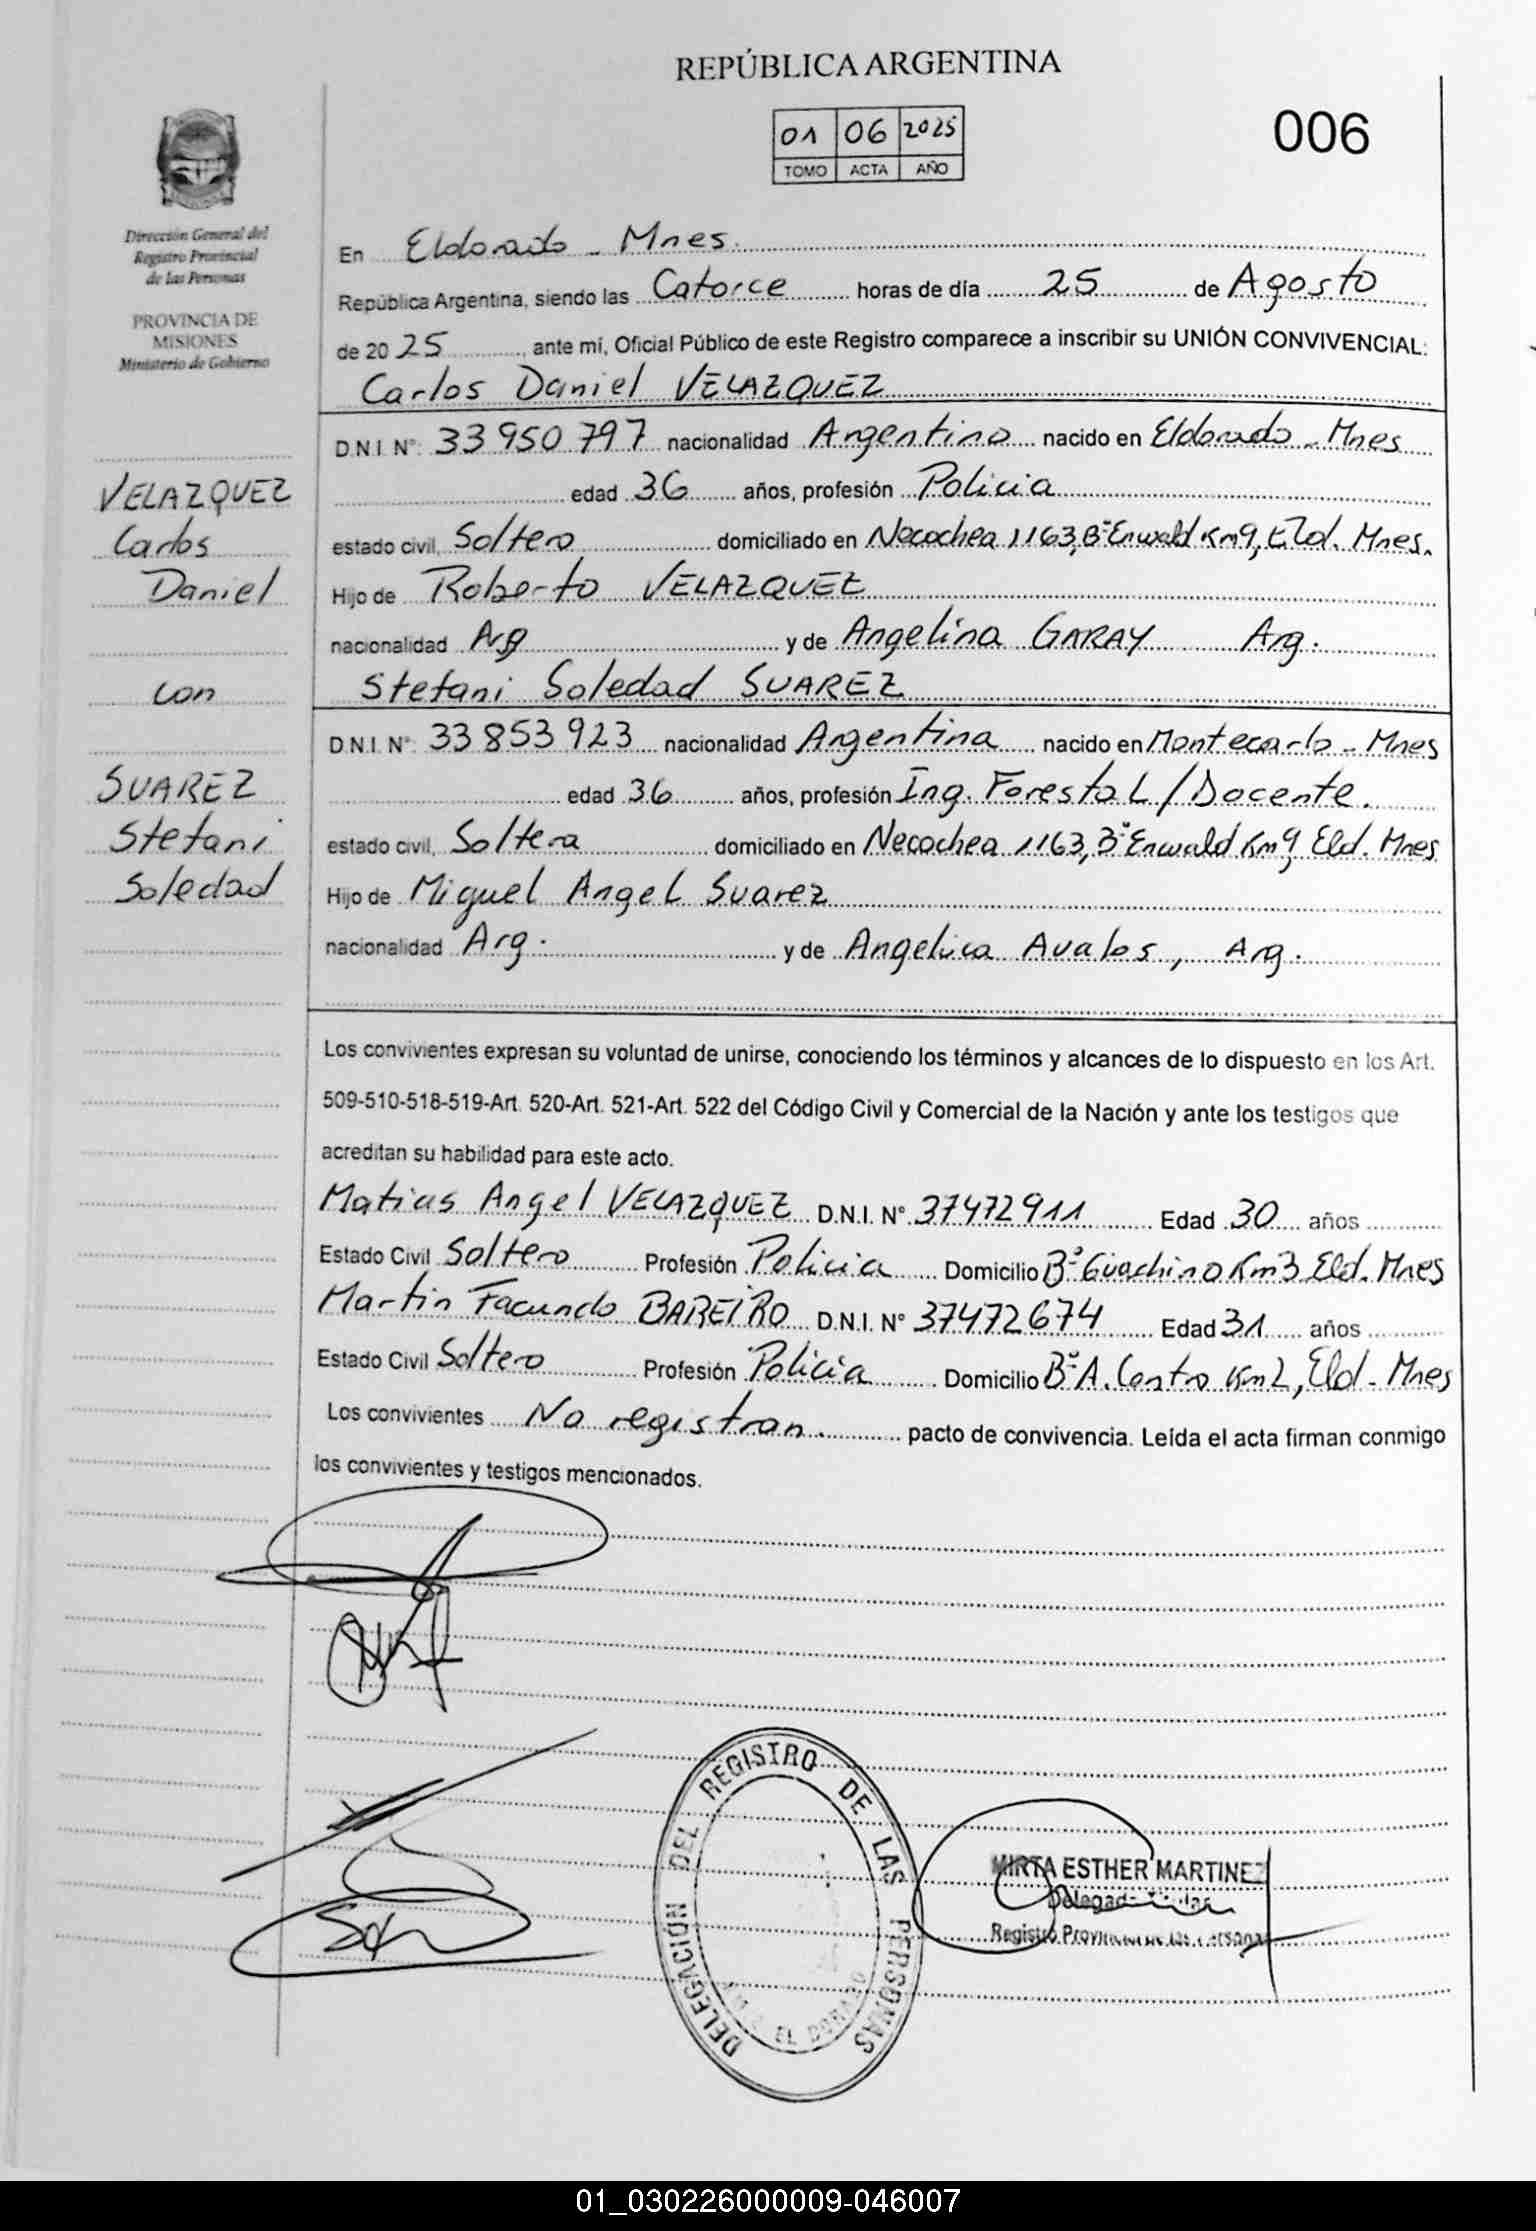 REPÚBLICA ARGENTINA
01 06 2025
TOMO ACTA AÑO
006
Dirección General del
Registro Provincial
de las Personas
PROVINCIA DE
MISIONES
Ministerio de Gobierno
En Eldorado - Mnes.
República Argentina, siendo las Catorce horas de día 25 de Agosto
de 2025, ante mí, Oficial Público de este Registro comparece a inscribir su UNIÓN CONVIVENCIAL:
Carlos Daniel VELAZQUEZ
D.N.I. N°: 33 950 797 nacionalidad Argentino nacido en Eldorado - Mnes
edad 36 años, profesión Policia
estado civil, Soltero domiciliado en Necochea 1163, B° Erwald Km9, Eld. Mnes.
Hijo de Roberto VELAZQUEZ
nacionalidad Arg y de Angelina GARAY Arg.
Stefani Soledad SUAREZ
D.N.I. N° 33 853 923 nacionalidad Argentina nacido en Montecarlo - Mnes
edad 36 años, profesión Ing. Forestal / Docente.
estado civil, Soltera domiciliado en Necochea 1163, B° Erwald Km9 Eld. Mnes
Hijo de Miguel Angel Suarez
nacionalidad Arg. y de Angelica Avalos, Arg.
VELAZQUEZ
Carlos
Daniel
con
SUAREZ
Stefani
Soledad
Los convivientes expresan su voluntad de unirse, conociendo los términos y alcances de lo dispuesto en los Art.
509-510-518-519-Art. 520-Art. 521-Art. 522 del Código Civil y Comercial de la Nación y ante los testigos que
acreditan su habilidad para este acto.
Matias Angel VELAZQUEZ D.N.I. N° 37472911 Edad 30 años
Estado Civil Soltero Profesión Policia Domicilio B° Guachino Km3 Eld. Mnes
Martin Facundo BAREIRO D.N.I. N° 37472674 Edad 31 años
Estado Civil Soltero Profesión Policia Domicilio B° A. Centro Km2, Eld - Mnes
Los convivientes No registran. pacto de convivencia. Leída el acta firman conmigo
los convivientes y testigos mencionados.
DELEGACIÓN DEL REGISTRO DE LAS PERSONAS
EL DORADO
MIRTA ESTHER MARTINEZ
Registro
01_030226000009-046007